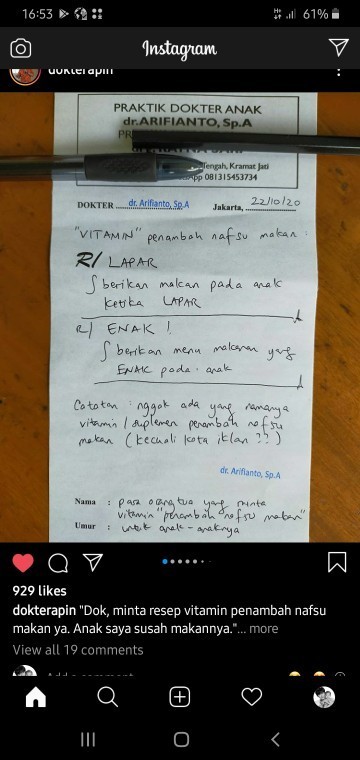 16:53
61%
Instagram
dokterapin
PRAKTIK DOKTER ANAK
dr.ARIFIANTO, Sp.A
Tengah, Kramat Jati
081315453734
DOKTER dr. Arifianto, Sp.A Jakarta, 22/10/20
"VITAMIN" penambah nafsu makan :
R/ LAPAR
∫ berikan makan pada anak
ketika LAPAR
R/ ENAK !
∫ berikan menu makanan yang
ENAK pada anak
Catatan : nggak ada yang namanya
vitamin / suplemen penambah nafsu
makan (kecuali kata iklan ??)
dr. Arifianto, Sp.A
Nama : para orangtua yang minta
vitamin "penambah nafsu makan"
Umur : untuk anak-anaknya
929 likes
dokterapin "Dok, minta resep vitamin penambah nafsu
makan ya. Anak saya susah makannya."... more
View all 19 comments